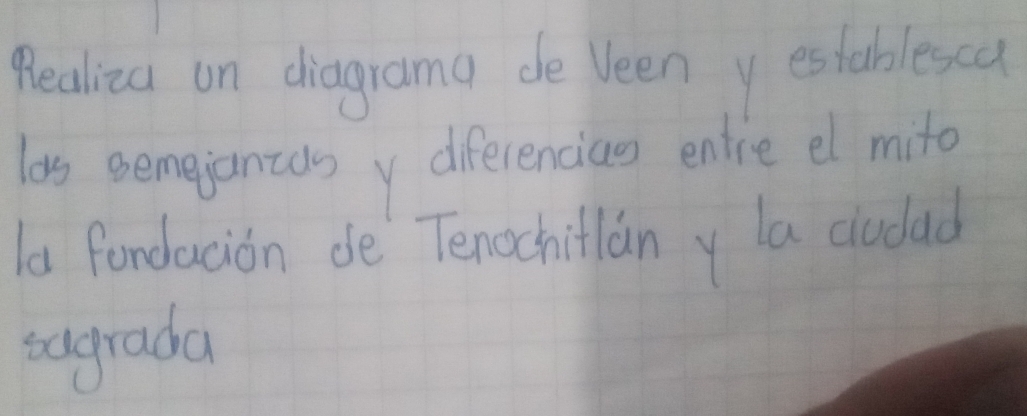 Realiza un diagrama de Veen y establesca
las semejanzas y diferencias entre el mito
la fundación de Tenochitlán y la ciudad
sagrada